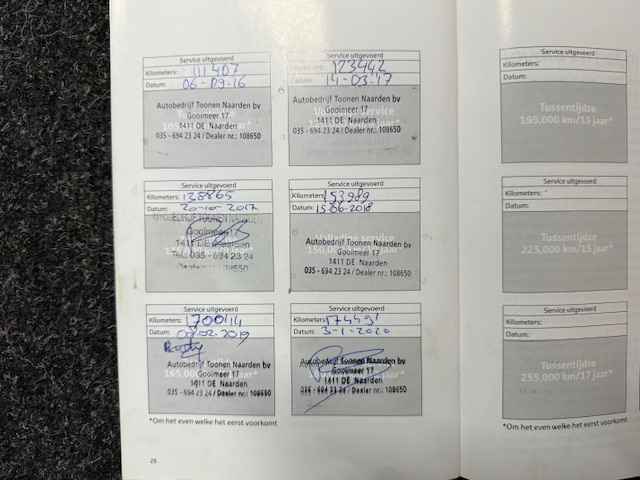 Service uitgevoerd
Kilometers: 111407
Datum: 06-09-16
Autobedrijf Toonen Naarden bv
Gooimeer 17
1411 DE Naarden
035 - 694 23 24 / Dealer nr.: 108650
Service uitgevoerd
Kilometers: 123442
Datum: 14-03-17
Autobedrijf Toonen Naarden bv
Gooimeer 17
1411 DE Naarden
035 - 694 23 24 / Dealer nr.: 108650
Service uitgevoerd
Kilometers: 138865
Datum: 20-10-2017
Gooimeer 17
1411 DE Naarden
Tel.: 035 - 694 23 24
Service uitgevoerd
Kilometers: 153989
Datum: 15-06-2018
Volledige service
Autobedrijf Toonen Naarden bv
Gooimeer 17
1411 DE Naarden
035 - 694 23 24 / Dealer nr.: 108650
Service uitgevoerd
Kilometers: 170014
Datum: 02-2019
Autobedrijf Toonen Naarden bv
Gooimeer 17
1411 DE Naarden
035 - 694 23 24 / Dealer nr.: 108650
Service uitgevoerd
Kilometers:
Datum: 3-1-2020
Autobedrijf Toonen Naarden bv
Gooimeer 17
1411 DE Naarden
035 - 694 23 24 / Dealer nr.: 108650
*Om het even welke het eerst voorkomt
26
Service uitgevoerd
Kilometers:
Datum:
Tussentijdse
195.000 km/13 jaar*
Service uitgevoerd
Kilometers:
Datum:
Tussentijdse
225.000 km/15 jaar*
Service uitgevoerd
Kilometers:
Datum:
Tussentijdse
255.000 km/17 jaar*
*Om het even welke het eerst